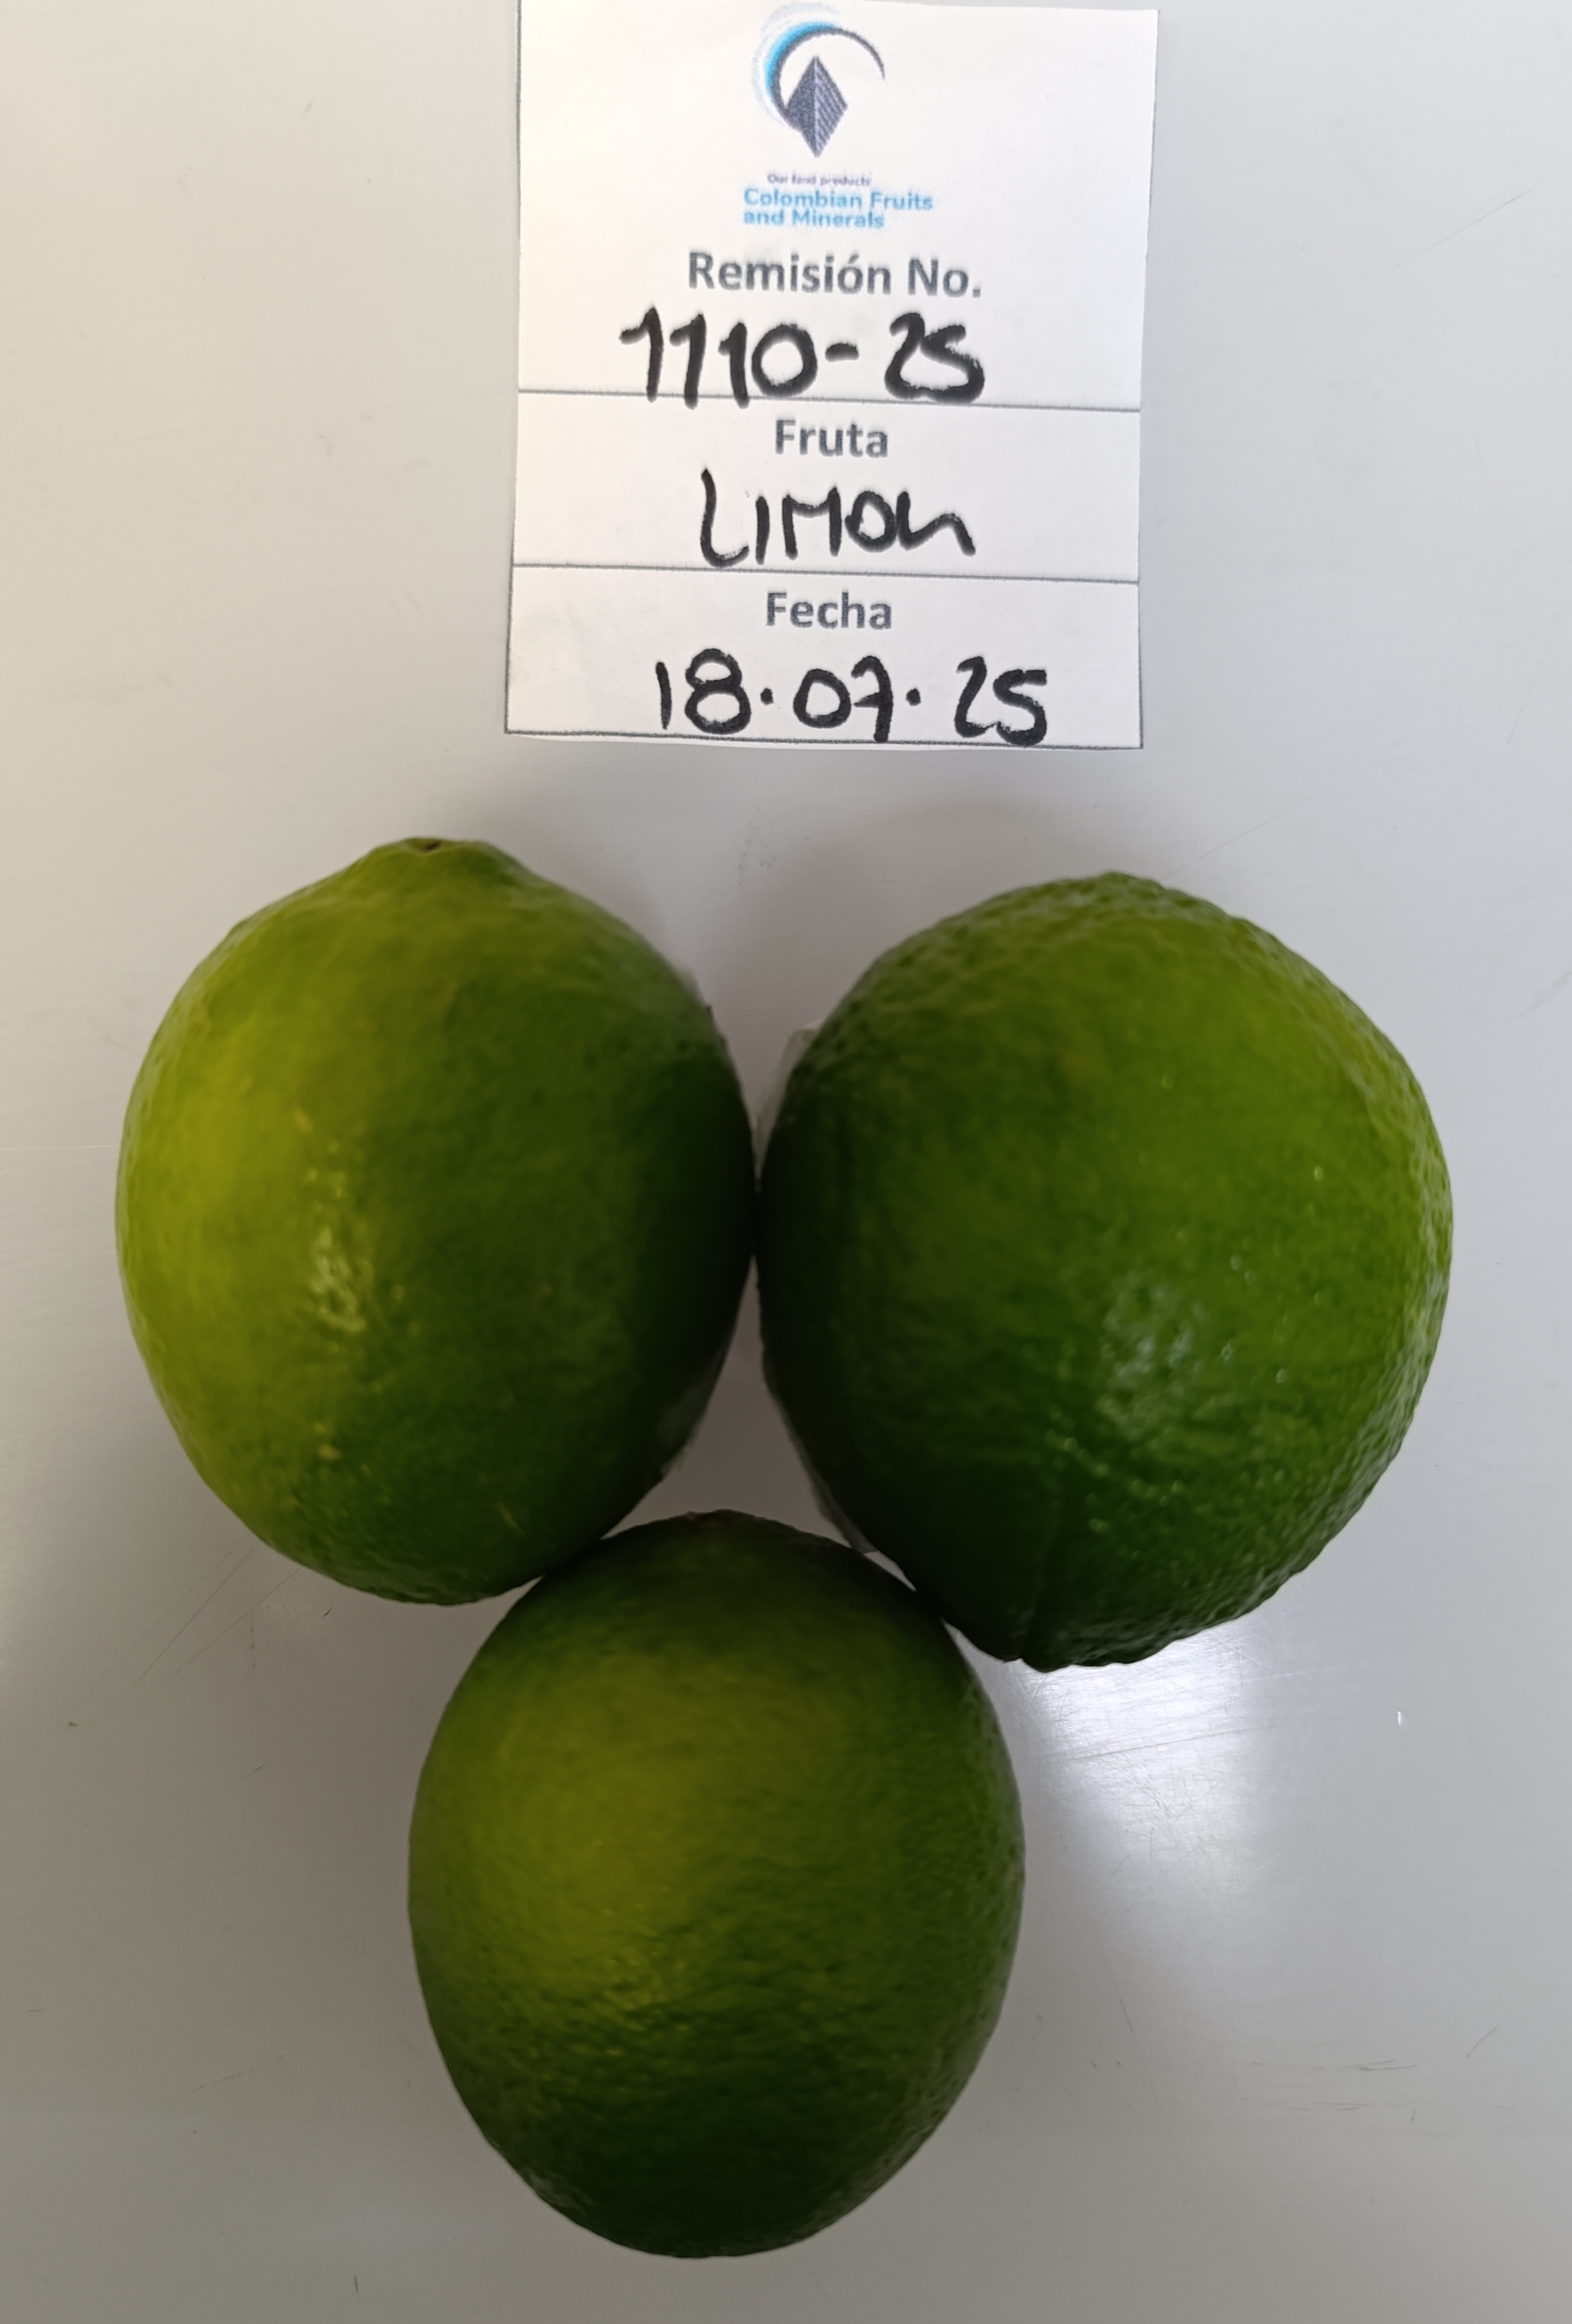 Our land products
Colombian Fruits
and Minerals
Remisión No.
1110-25
Fruta
LIMON
Fecha
18.07.25